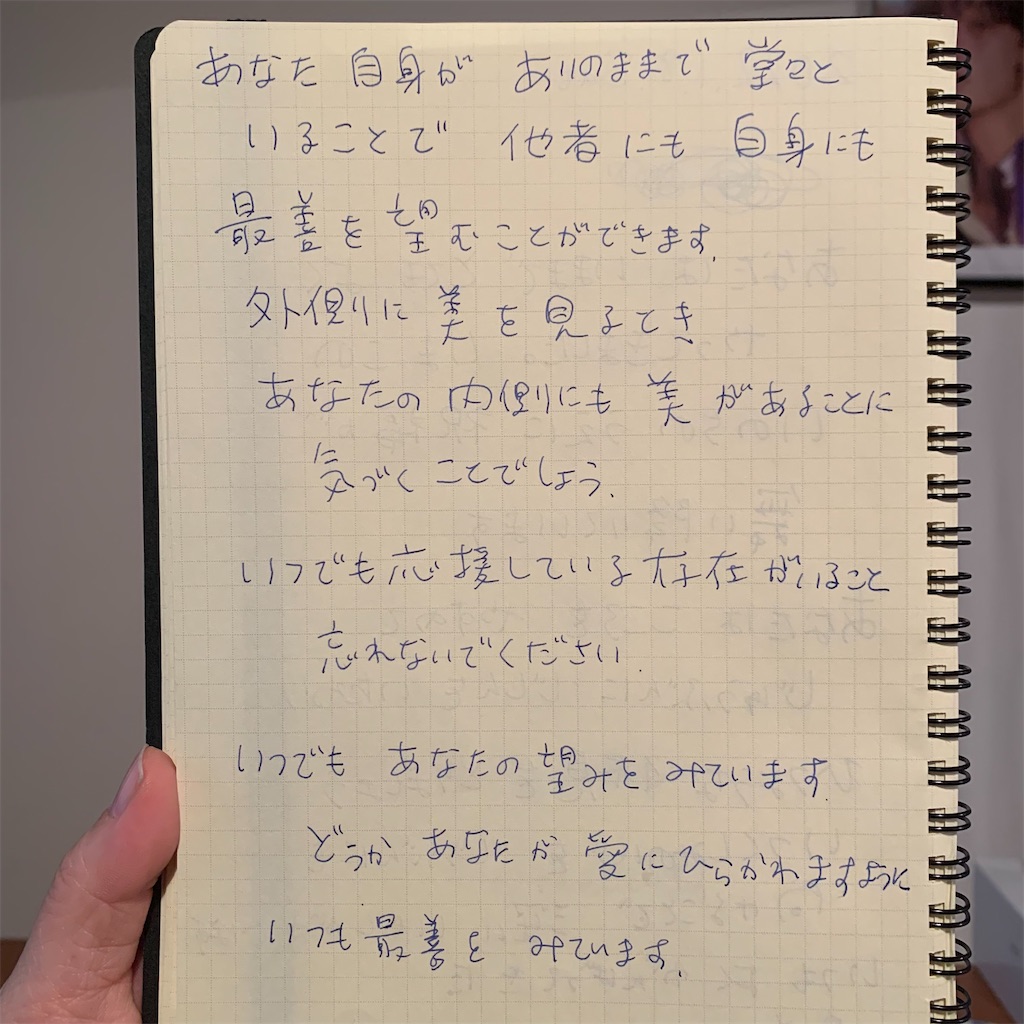 あなた 自身が ありのままで 堂々と
いることで 他者にも 自身にも
最善を望むことができます.
外側に 美を見るとき
あなたの 内側にも 美があることに
気づくことでしょう.
いつでも応援している存在がいること
忘れないでください.
いつでも あなたの望みをみています.
どうか あなたが 愛にひらかれますように
いつも最善を みています.